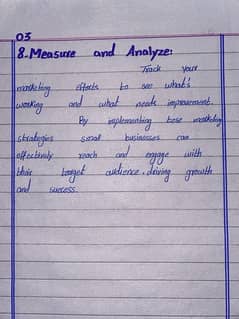 03
8. Measure and Analyze:
Track your
marketing efforts to see what's
working and what needs improvement.
By implementing these marketing
strategies small businesses can
effectively reach and engage with
their target audience, driving growth
and success.